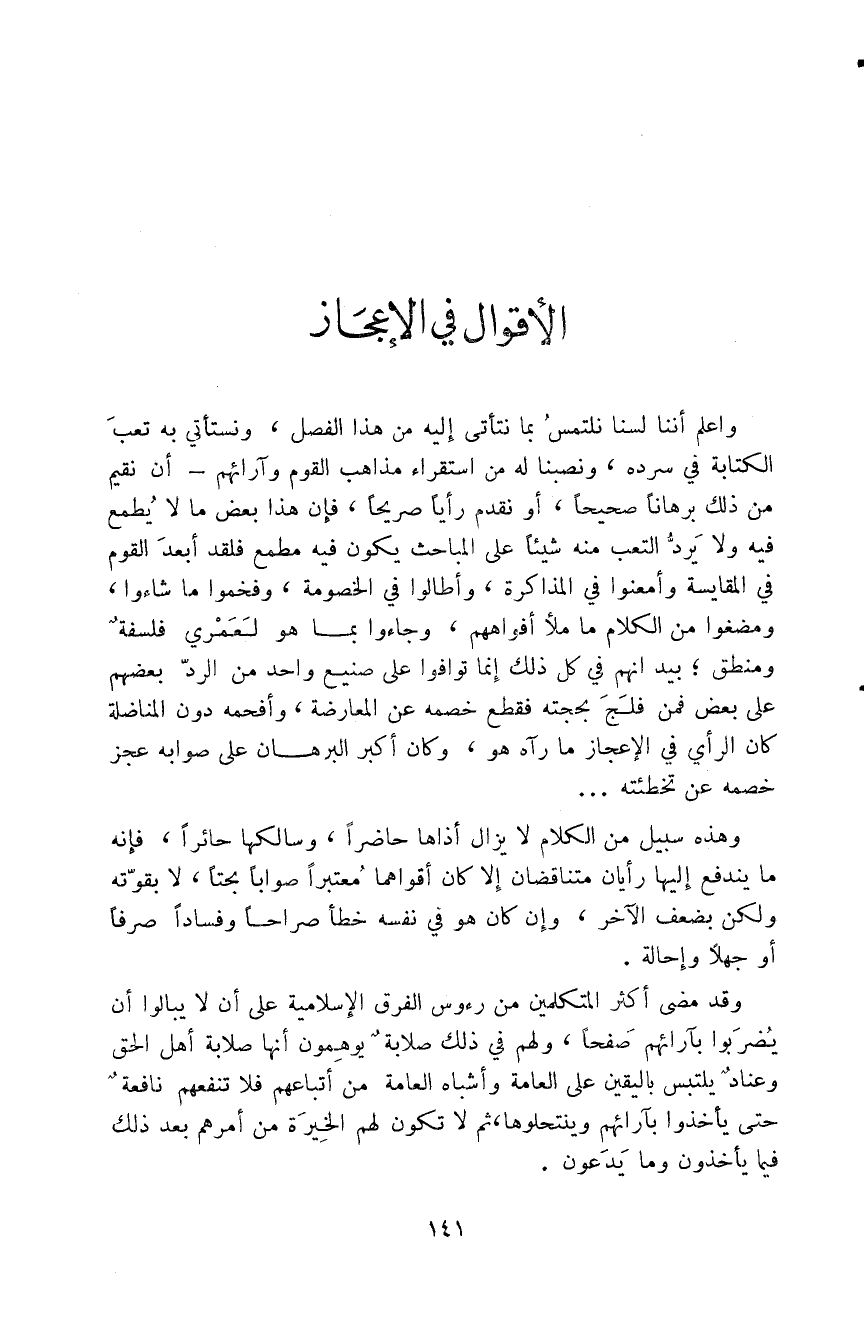 الأقوال في الإعجَاز
واعلم أننا لسنا نلتمسُ بما نتأتى إليه من هذا الفصل ، ونستأتي به تعبَ
الكتابة في سرده ، ونصبنا له من استقراء مذاهب القوم وآرائهم – أن نقيم
من ذلك برهاناً صحيحاً ، أو نقدم رأياً صريحاً ، فإن هذا بعض ما لا يُطمع
فيه ولا يَردُّ التعب منه شيئاً على المباحث يكون فيه مطمع فلقد أبعدَ القوم
في المقايسة وأمعنوا في المذاكرة ، وأطالوا في الخصومة ، وفخموا ما شاءوا ،
ومضغوا من الكلام ما ملأ أفواههم ، وجاءوا بمـا هو لـَعَمْري فلسفةٌ
ومنطق ؛ بيد انهم في كل ذلك إنما توافوا على صنيع واحد من الردّ بعضهم
على بعض فمن فلـَجَ بحجته فقطع خصمه عن المعارضة ، وأفحمه دون المناضلة
كان الرأي في الإعجاز ما رآه هو ، وكان أكبر البرهـان على صوابه عجز
خصمه عن تخطئته ...
وهذه سبيل من الكلام لا يزال أذاها حاضراً ، وسالكها حائراً ، فإنه
ما يندفع إليها رأيان متناقضان إلا كان أقواهما مُعتبراً صواباً بحتاً ، لا بقوّته
ولكن بضعف الآخر ، وإن كان هو في نفسه خطأ صراحـاً وفساداً صرفاً
أو جهلاً وإحالة .
وقد مضى أكثر المتكلمين من رءوس الفرق الإسلامية على أن لا يبالوا أن
يُضرَبوا بآرائهم صَفحاً ، ولهم في ذلك صلابةٌ يوهِمون أنها صلابة أهل الحق
وعنادٌ يلتبس باليقين على العامة وأشباه العامة من أتباعهم فلا تنفعهم نافعةٌ
حتى يأخذوا بآرائهم وينتحلوها،ثم لا تكون لهم الخِيرَة من أمرهم بعد ذلك
فيما يأخذون وما يَدَعون .
١٤١